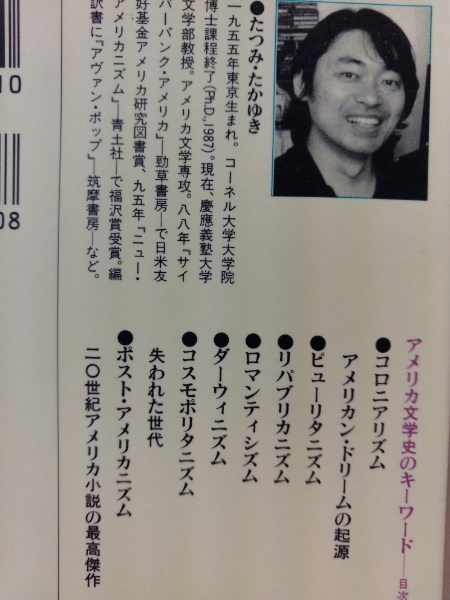 ●たつみ・たかゆき
一九五五年東京生まれ。コーネル大学大学院
博士課程終了(Ph.D., 1987)。現在、慶應義塾大学
文学部教授。アメリカ文学専攻。八八年『サイ
バーパンク・アメリカ』―勁草書房―で日米友
好基金アメリカ研究図書賞、九五年『ニュー・
アメリカニズム』―青土社―で福沢賞受賞。編
訳書に『アヴァン・ポップ』―筑摩書房―など。
アメリカ文学史のキーワード――目次
●コロニアリズム
アメリカン・ドリームの起源
●ピューリタニズム
●リパブリカニズム
●ロマンティシズム
●ダーウィニズム
●コスモポリタニズム
失われた世代
●ポスト・アメリカニズム
二〇世紀アメリカ小説の最高傑作
10
08